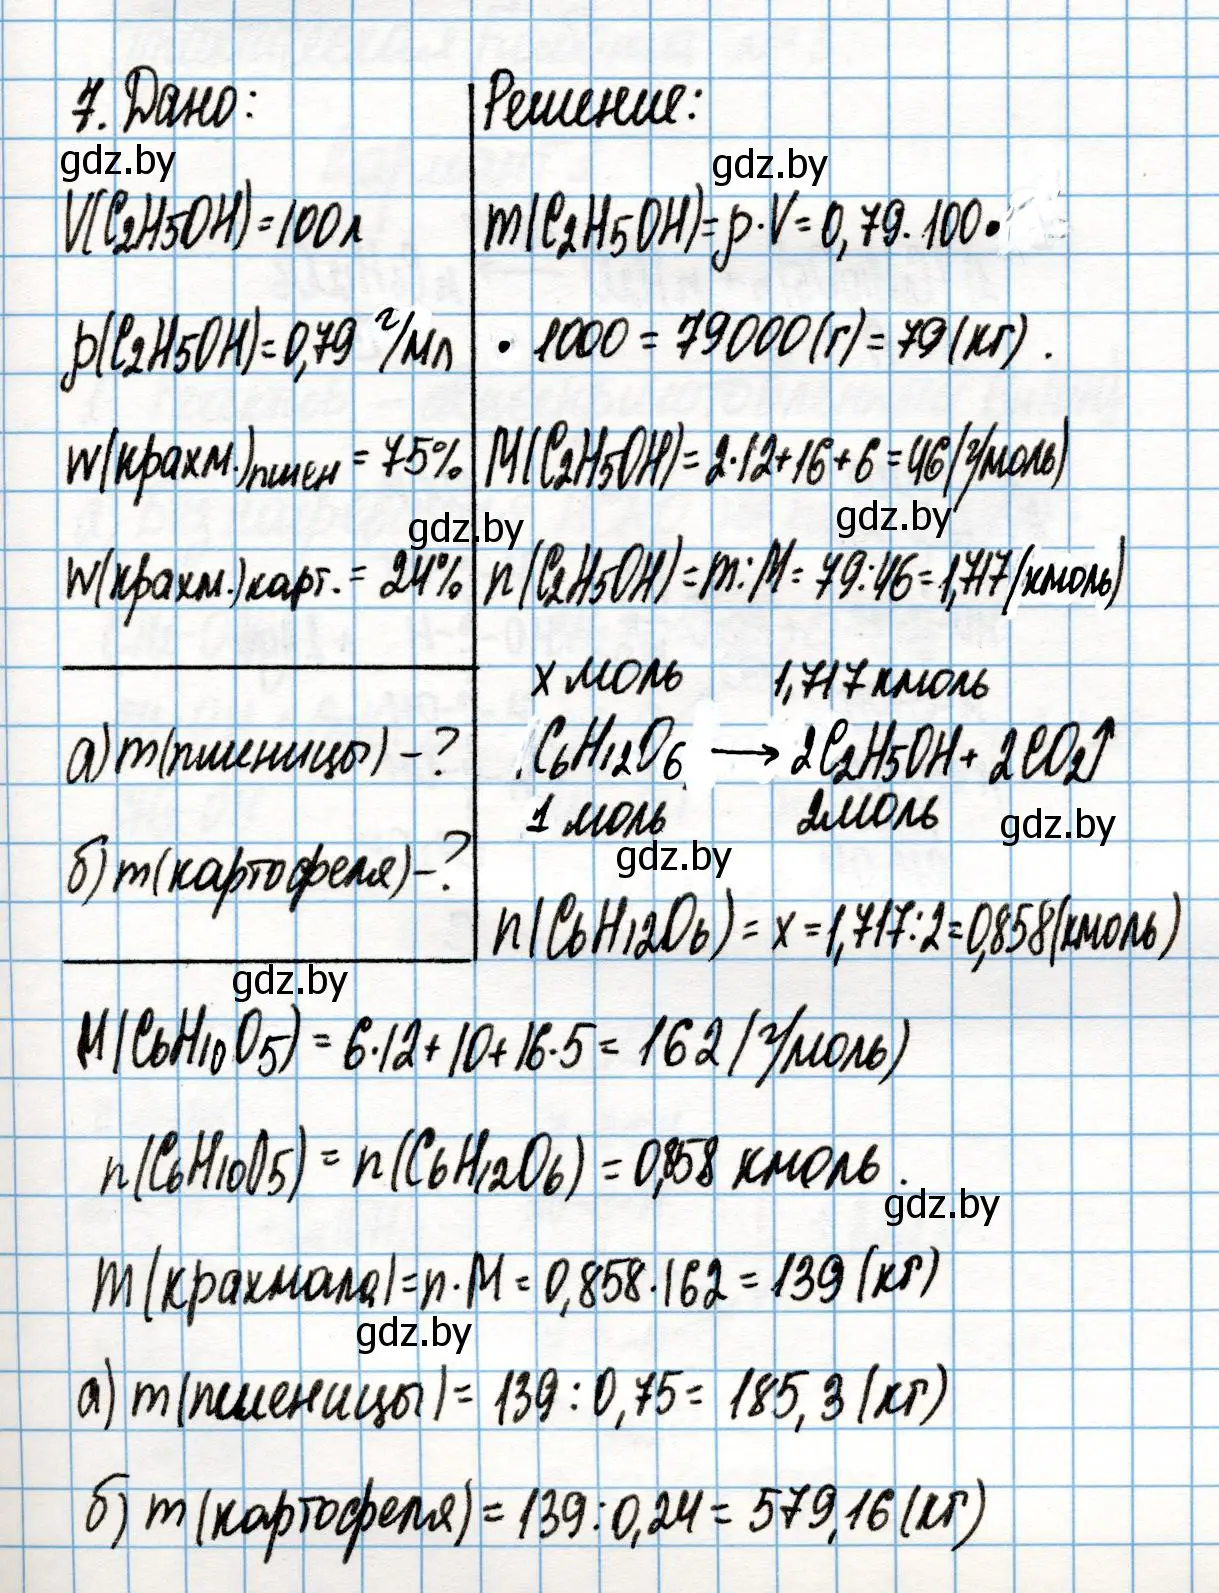 7. Дано:
gdz.by
V(C₂H₅OH) = 100 л
ρ(C₂H₅OH) = 0,79 г/мл
w(крахм.)пшен = 75%
gdz.by
w(крахм.)карт. = 24%
а) m(пшеницы) - ?
б) m(картофеля) - ?
gdz.by
Решение:
gdz.by
m(C₂H₅OH) = ρ·V = 0,79·100·
· 1000 = 79000(г) = 79(кг).
M(C₂H₅OH) = 2·12+16+6 = 46(г/моль)
gdz.by
n(C₂H₅OH) = m:M = 79:46 = 1,717(кмоль)
x моль 1,717 кмоль
C₆H₁₂O₆ ⟶ 2C₂H₅OH + 2CO₂↑
1 моль 2 моль
gdz.by
gdz.by
n(C₆H₁₂O₆) = x = 1,717:2 = 0,858(кмоль)
M(C₆H₁₀O₅) = 6·12+10+16·5 = 162(г/моль)
n(C₆H₁₀O₅) = n(C₆H₁₂O₆) = 0,858 кмоль.
gdz.by
m(крахмала) = n·M = 0,858·162 = 139(кг)
gdz.by
а) m(пшеницы) = 139:0,75 = 185,3(кг)
б) m(картофеля) = 139:0,24 = 579,16(кг)